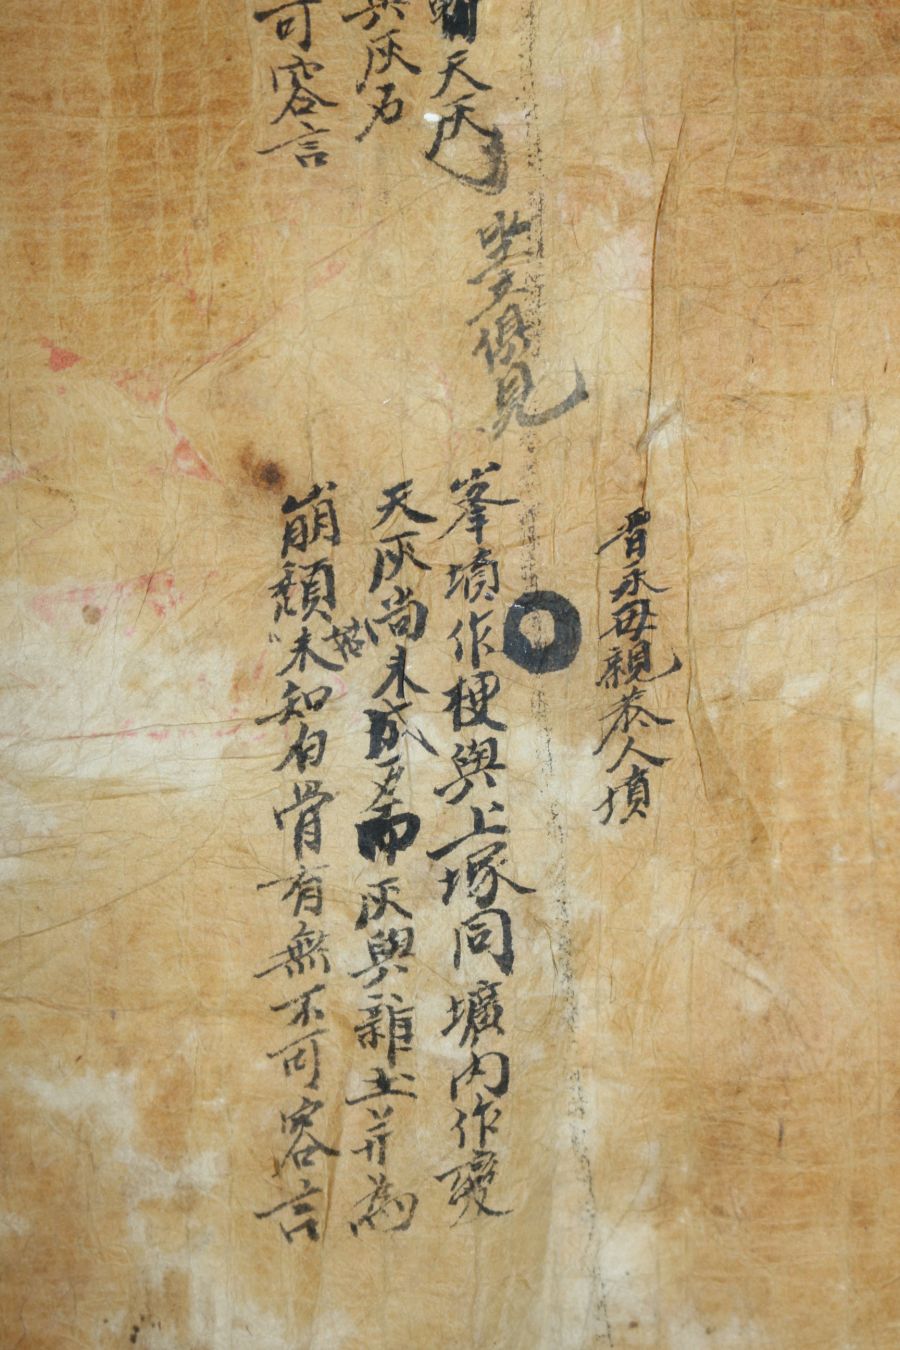 晋永母親恭人墳
坐
俱見
天灰
與灰名
可容言
峯墳作梗與上塚同壙內作變
天灰尚未成而灰與雜土并為
崩頹未知白骨有無不可容言